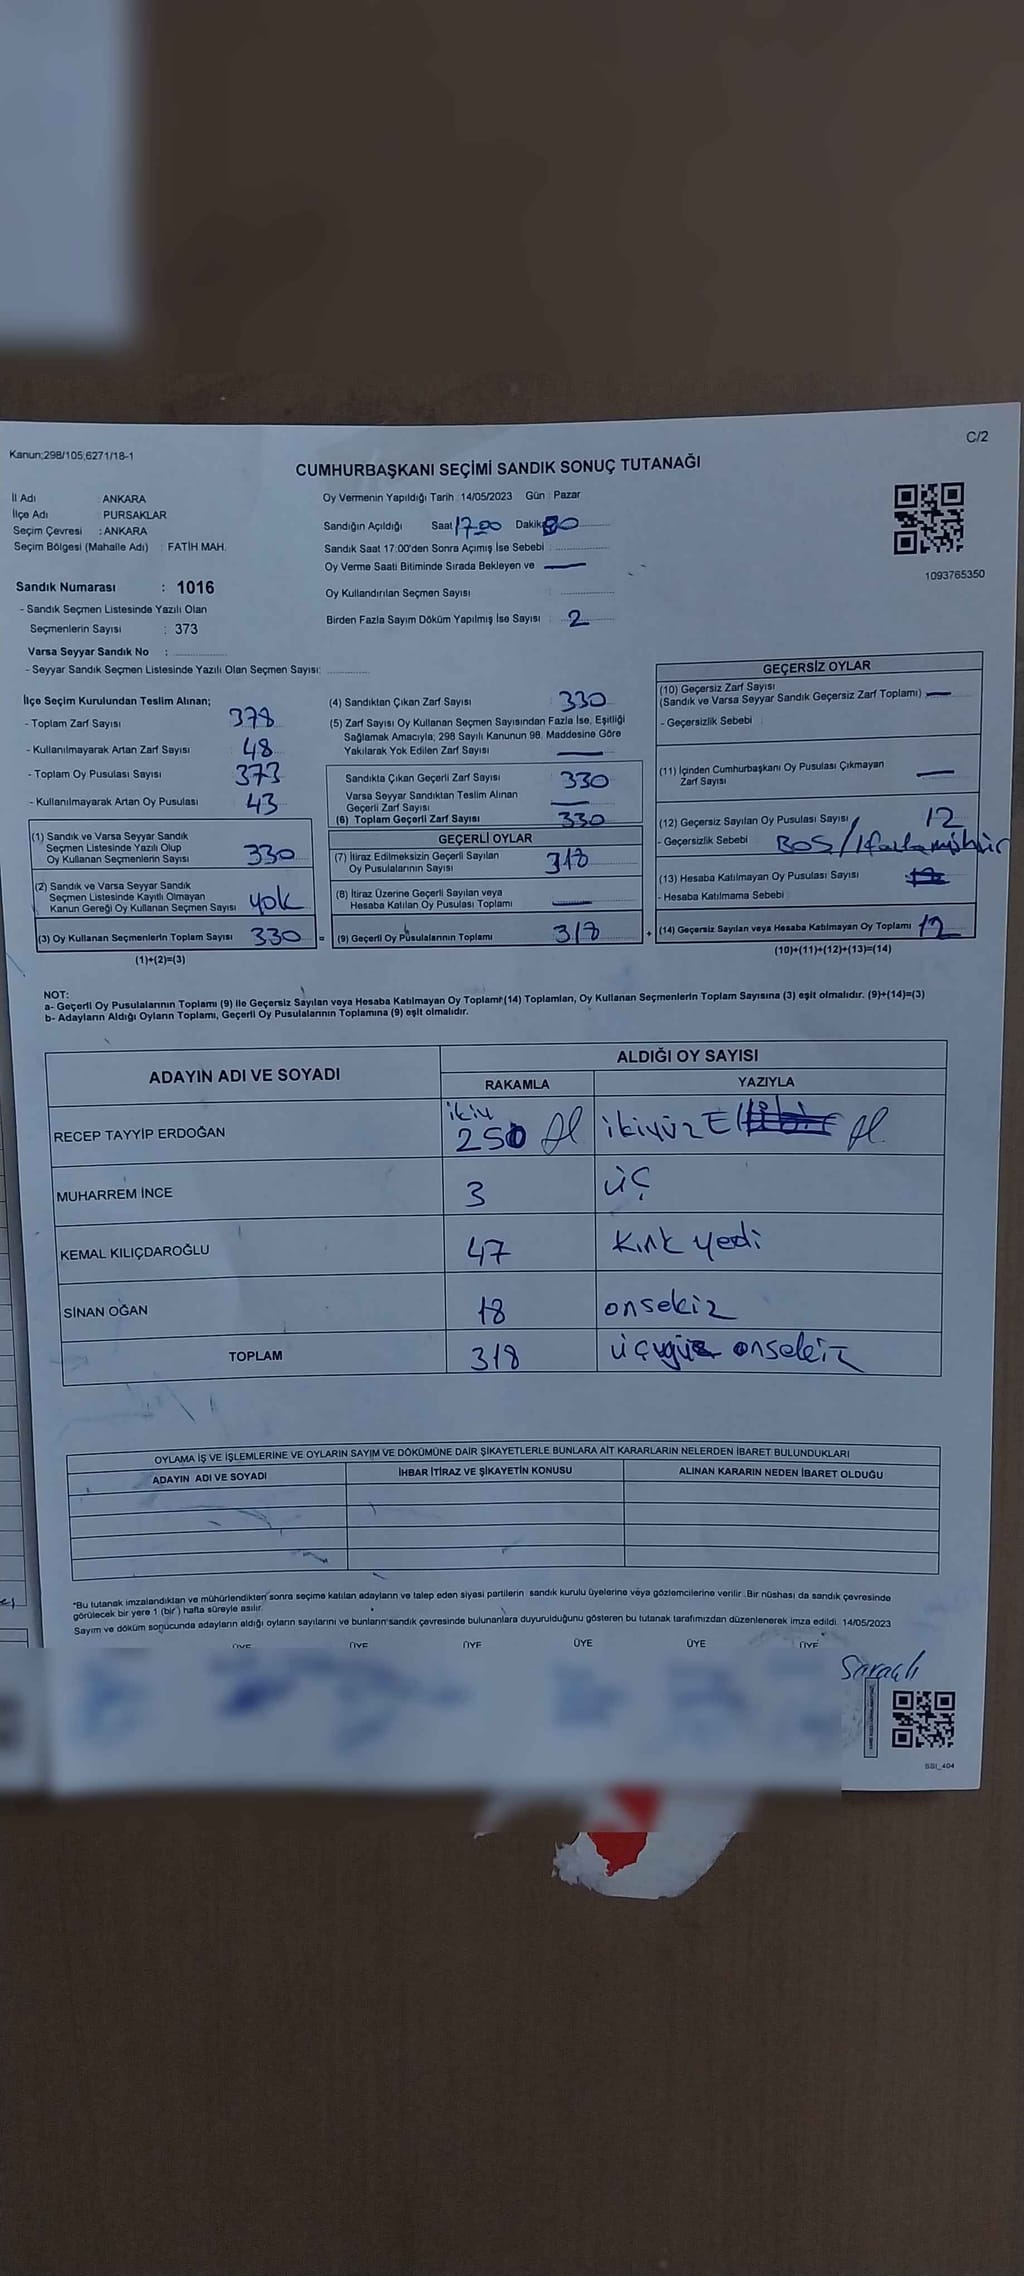 C/2
Kanun;298/105;6271/18-1
CUMHURBAŞKANI SEÇİMİ SANDIK SONUÇ TUTANAĞI
İl Adı : ANKARA
İlçe Adı : PURSAKLAR
Seçim Çevresi : ANKARA
Seçim Bölgesi (Mahalle Adı) : FATİH MAH.
Sandık Numarası : 1016
- Sandık Seçmen Listesinde Yazılı Olan
Seçmenlerin Sayısı : 373
Varsa Seyyar Sandık No :
- Seyyar Sandık Seçmen Listesinde Yazılı Olan Seçmen Sayısı:
Oy Vermenin Yapıldığı Tarih : 14/05/2023 Gün : Pazar
Sandığın Açıldığı Saat 17.00 Dakika
Sandık Saat 17:00'den Sonra Açımış İse Sebebi :
Oy Verme Saati Bitiminde Sırada Bekleyen ve
Oy Kullandırılan Seçmen Sayısı :
Birden Fazla Sayım Döküm Yapılmış İse Sayısı : 2
1093765350
İlçe Seçim Kurulundan Teslim Alınan;
- Toplam Zarf Sayısı 378
- Kullanılmayarak Artan Zarf Sayısı 48
- Toplam Oy Pusulası Sayısı 373
- Kullanılmayarak Artan Oy Pusulası 43
(1) Sandık ve Varsa Seyyar Sandık
Seçmen Listesinde Yazılı Olup
Oy Kullanan Seçmenlerin Sayısı 330
(2) Sandık ve Varsa Seyyar Sandık
Seçmen Listesinde Kayıtlı Olmayan
Kanun Gereği Oy Kullanan Seçmen Sayısı yok
(3) Oy Kullanan Seçmenlerin Toplam Sayısı 330 =
(1)+(2)=(3)
(4) Sandıktan Çıkan Zarf Sayısı 330
(5) Zarf Sayısı Oy Kullanan Seçmen Sayısından Fazla İse, Eşitliği
Sağlamak Amacıyla; 298 Sayılı Kanunun 98. Maddesine Göre
Yakılarak Yok Edilen Zarf Sayısı
Sandıkta Çıkan Geçerli Zarf Sayısı 330
Varsa Seyyar Sandıktan Teslim Alınan
Geçerli Zarf Sayısı
(6) Toplam Geçerli Zarf Sayısı 330
GEÇERLİ OYLAR
(7) İtiraz Edilmeksizin Geçerli Sayılan
Oy Pusulalarının Sayısı 318
(8) İtiraz Üzerine Geçerli Sayılan veya
Hesaba Katılan Oy Pusulası Toplamı
(9) Geçerli Oy Pusulalarının Toplamı 318 +
GEÇERSİZ OYLAR
(10) Geçersiz Zarf Sayısı
(Sandık ve Varsa Seyyar Sandık Geçersiz Zarf Toplamı)
- Geçersizlik Sebebi
(11) İçinden Cumhurbaşkanı Oy Pusulası Çıkmayan
Zarf Sayısı
(12) Geçersiz Sayılan Oy Pusulası Sayısı 12
- Geçersizlik Sebebi BOS/
(13) Hesaba Katılmayan Oy Pusulası Sayısı
- Hesaba Katılmama Sebebi
(14) Geçersiz Sayılan veya Hesaba Katılmayan Oy Toplamı 12
(10)+(11)+(12)+(13)=(14)
NOT:
a- Geçerli Oy Pusulalarının Toplamı (9) ile Geçersiz Sayılan veya Hesaba Katılmayan Oy Toplamı (14) Toplamları, Oy Kullanan Seçmenlerin Toplam Sayısına (3) eşit olmalıdır. (9)+(14)=(3)
b- Adayların Aldığı Oyların Toplamı, Geçerli Oy Pusulalarının Toplamına (9) eşit olmalıdır.
ADAYIN ADI VE SOYADI
ALDIĞI OY SAYISI
RAKAMLA YAZIYLA
RECEP TAYYİP ERDOĞAN 250 ikiyüz Elli
MUHARREM İNCE 3 üç
KEMAL KILIÇDAROĞLU 47 kırk yedi
SİNAN OĞAN 18 onsekiz
TOPLAM 318 üçyüz onsekiz
OYLAMA İŞ VE İŞLEMLERİNE VE OYLARIN SAYIM VE DÖKÜMÜNE DAİR ŞİKAYETLERLE BUNLARA AİT KARARLARIN NELERDEN İBARET BULUNDUKLARI
ADAYIN ADI VE SOYADI İHBAR İTİRAZ VE ŞİKAYETİN KONUSU ALINAN KARARIN NEDEN İBARET OLDUĞU
*Bu tutanak imzalandıktan ve mühürlendikten sonra seçime katılan adayların ve talep eden siyasi partilerin sandık kurulu üyelerine veya gözlemcilerine verilir. Bir nüshası da sandık çevresinde
görülecek bir yere 1 (bir) hafta süreyle asılır.
Sayım ve döküm sonucunda adayların aldığı oyların sayılarını ve bunların sandık çevresinde bulunanlara duyurulduğunu gösteren bu tutanak tarafımızdan düzenlenerek imza edildi. 14/05/2023
ÜYE ÜYE ÜYE ÜYE ÜYE ÜYE
SSI_404